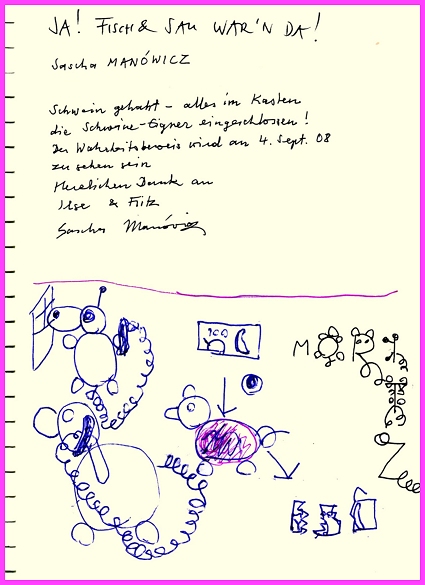 JA! FISCH & SAU WAR'N DA!
Sascha MANÓWICZ
Schwein gehabt – alles im Kasten
die Schweine-Eigner eingeschlossen!
Der Wahrheitsbeweis wird am 4. Sept. 08
zu sehen sein
Herzlichen Dank an
Ilse & Fritz
Sascha Manówicz
M